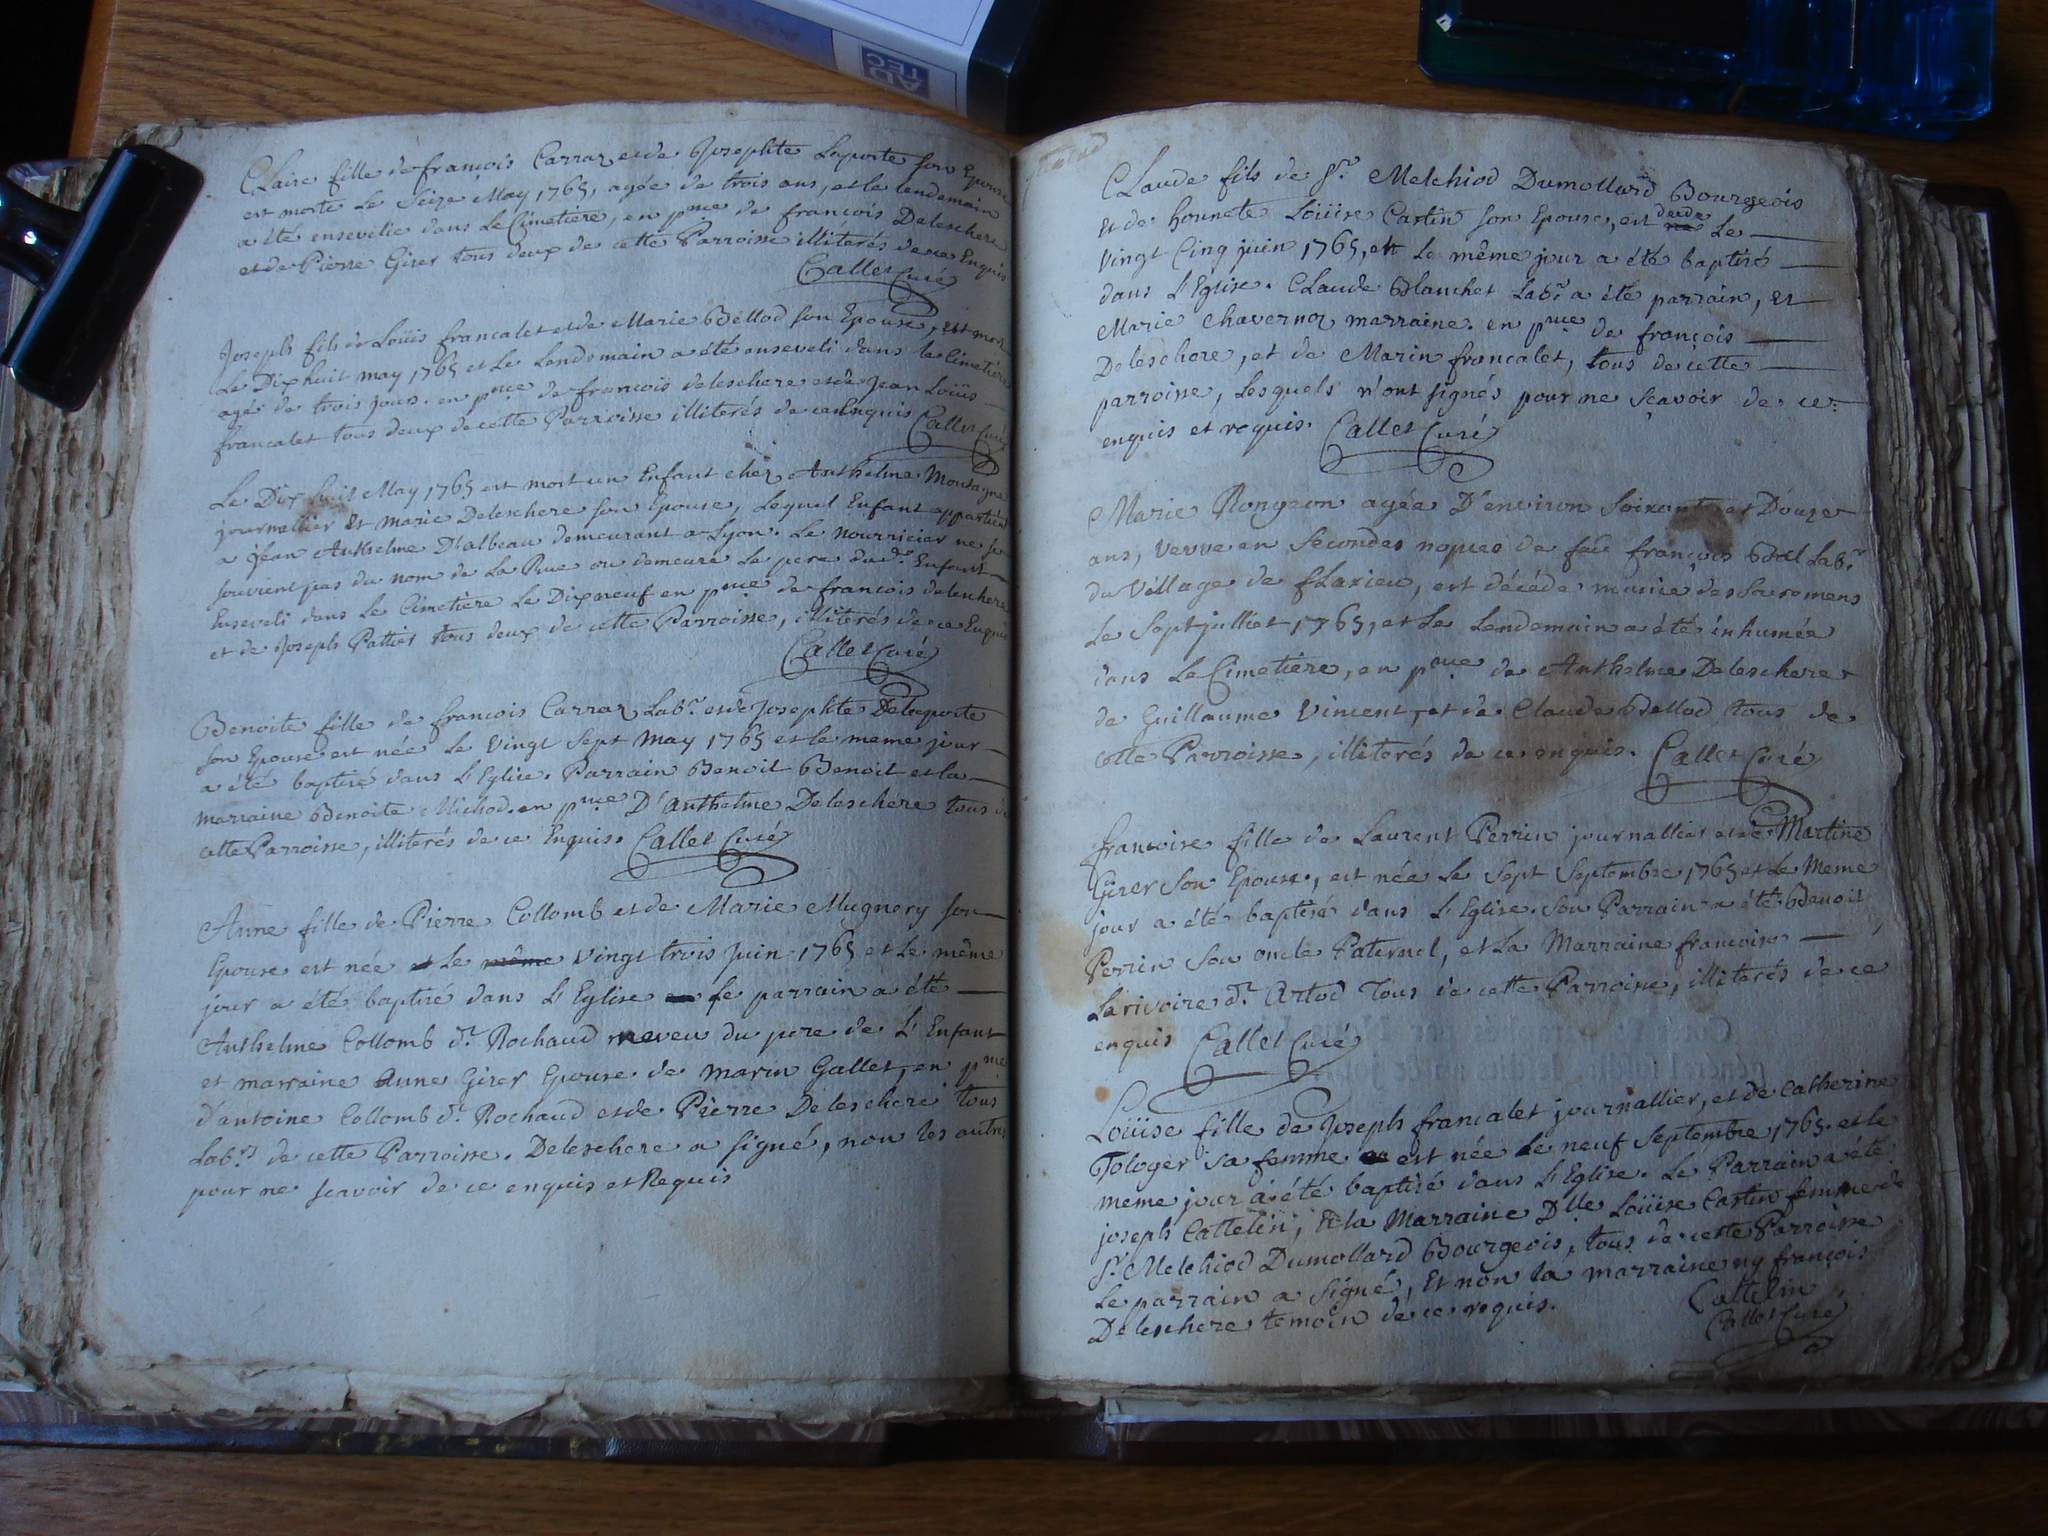 AD
TEC
Claire fille de francois Carraz et de Josephte Laporte son Epouse
est morte Le Seize May 1765, agée de trois ans, et le lendemain
a été ensevelie dans Le Cimetiere, en pnce de francois Deleschere
et de Pierre Girer tous deux de cette Parroisse illiterés de ce Enquis
Callet Curé
Joseph fils de Loüis francalet et de Marie Bellod son Epouse, est mort
Le Dixhuit may 1765 et Le Lendemain a été enseveli dans le Cimetiere
agé de trois jours. en pnce de francois deleschere et de Jean Loüis
francalet tous deux de cette Parroisse illiterés de ce Enquis Callet Curé
Le Dix huit May 1765 est mort un Enfant chez Anthelme Montagne
journallier Et marie Deleschere son Epouse, Lequel Enfant appartient
a Jean Anthelme D'albeau demeurant a Lyon. Le nourricier ne se
souvient pas du nom de La Rue ou demeure Le pere dud. Enfant
Enseveli dans Le Cimetiere Le Dixneuf en pnce de francois deleschere
et de Joseph Pattiet tous deux de cette Parroisse, illiterés de ce Enquis
Callet Curé
Benoite fille de francois Carraz Labr. et de Josephte Delaporte
son Epouse est née Le Vingt Sept May 1765 et le meme jour
a été baptisé dans L'Eglise. Parrain Benoit Benoit et la
marraine Benoite Michod. en pnce D'anthelme Deleschere tous de
cette Parroisse, illiterés de ce Enquis. Callet Curé
Anne fille de Pierre Collomb et de Marie Mugnery son
Epouse est née et Le même vingt trois Juin 1765 et Le même
jour a été baptisé dans L'Eglise Le parrain a été
Anthelme Collomb dt. Rochaud neveu du pere de L'Enfant
et marraine Anne Girer Epouse de marin Gallet, en pnce
d'antoine Collomb dt. Rochaud et de Pierre Deleschere tous
Labrs de cette Parroisse. Deleschere a signé, non les autres
pour ne scavoir de ce enquis et Requis
Claude fils de Sr. Melchiod Dumollard Bourgeois
et de honnete Loüise Castin son Epouse, est né Le
Vingt Cinq juin 1765, et Le même jour a été baptisé
dans L'Eglise. Claude Blanchet Labr. a été parrain, et
Marie Chavernoz marraine. en pnce de françois
Deleschere, et de Marin francalet, tous de cette
parroisse, Lesquels n'ont signés pour ne sçavoir de ce
enquis et requis. Callet Curé
Marie Rongeon agée D'environ Soixante et Douze
ans, veuve en Secondes nopces de feu françois Labr.
du Village de flaxieu, est décédé munie des Sacremens
Le Sept julliet 1765, et Le Lendemain a été inhumée
dans Le Cimetiere, en pnce de Anthelme Deleschere
de Guillaume Vincent, et de Claude Bellod tous de
cette Parroisse, illiterés de ce enquis. Callet Curé
françoise fille de Laurent Perrin journallier et de Martine
Girer Son Epouse, est née Le Sept Septembre 1765 et Le Meme
jour a été baptisé dans L'Eglise. Son Parrain a été Benoit
Perrin Son oncle Paternel, et La Marraine francoise
Larivoire dt. Artod Tous de cette Parroisse, illiterés de ce
enquis Callet Curé
Loüise fille de Joseph francalet journallier, et de Catherine
Tologer sa femme est née Le neuf Septembre 1765. et le
meme jour a été baptisé dans L'Eglise. Le Parrain a été
joseph Cattelin, Et la Marraine Dlle Loüise Castin femme de
Sr. Melchiod Dumollard Bourgeois, tous de cette Parroisse
Le parrain a signé, Et non la marraine ny françois
Deleschere temoin de ce requis. Cattelin
Callet Curé